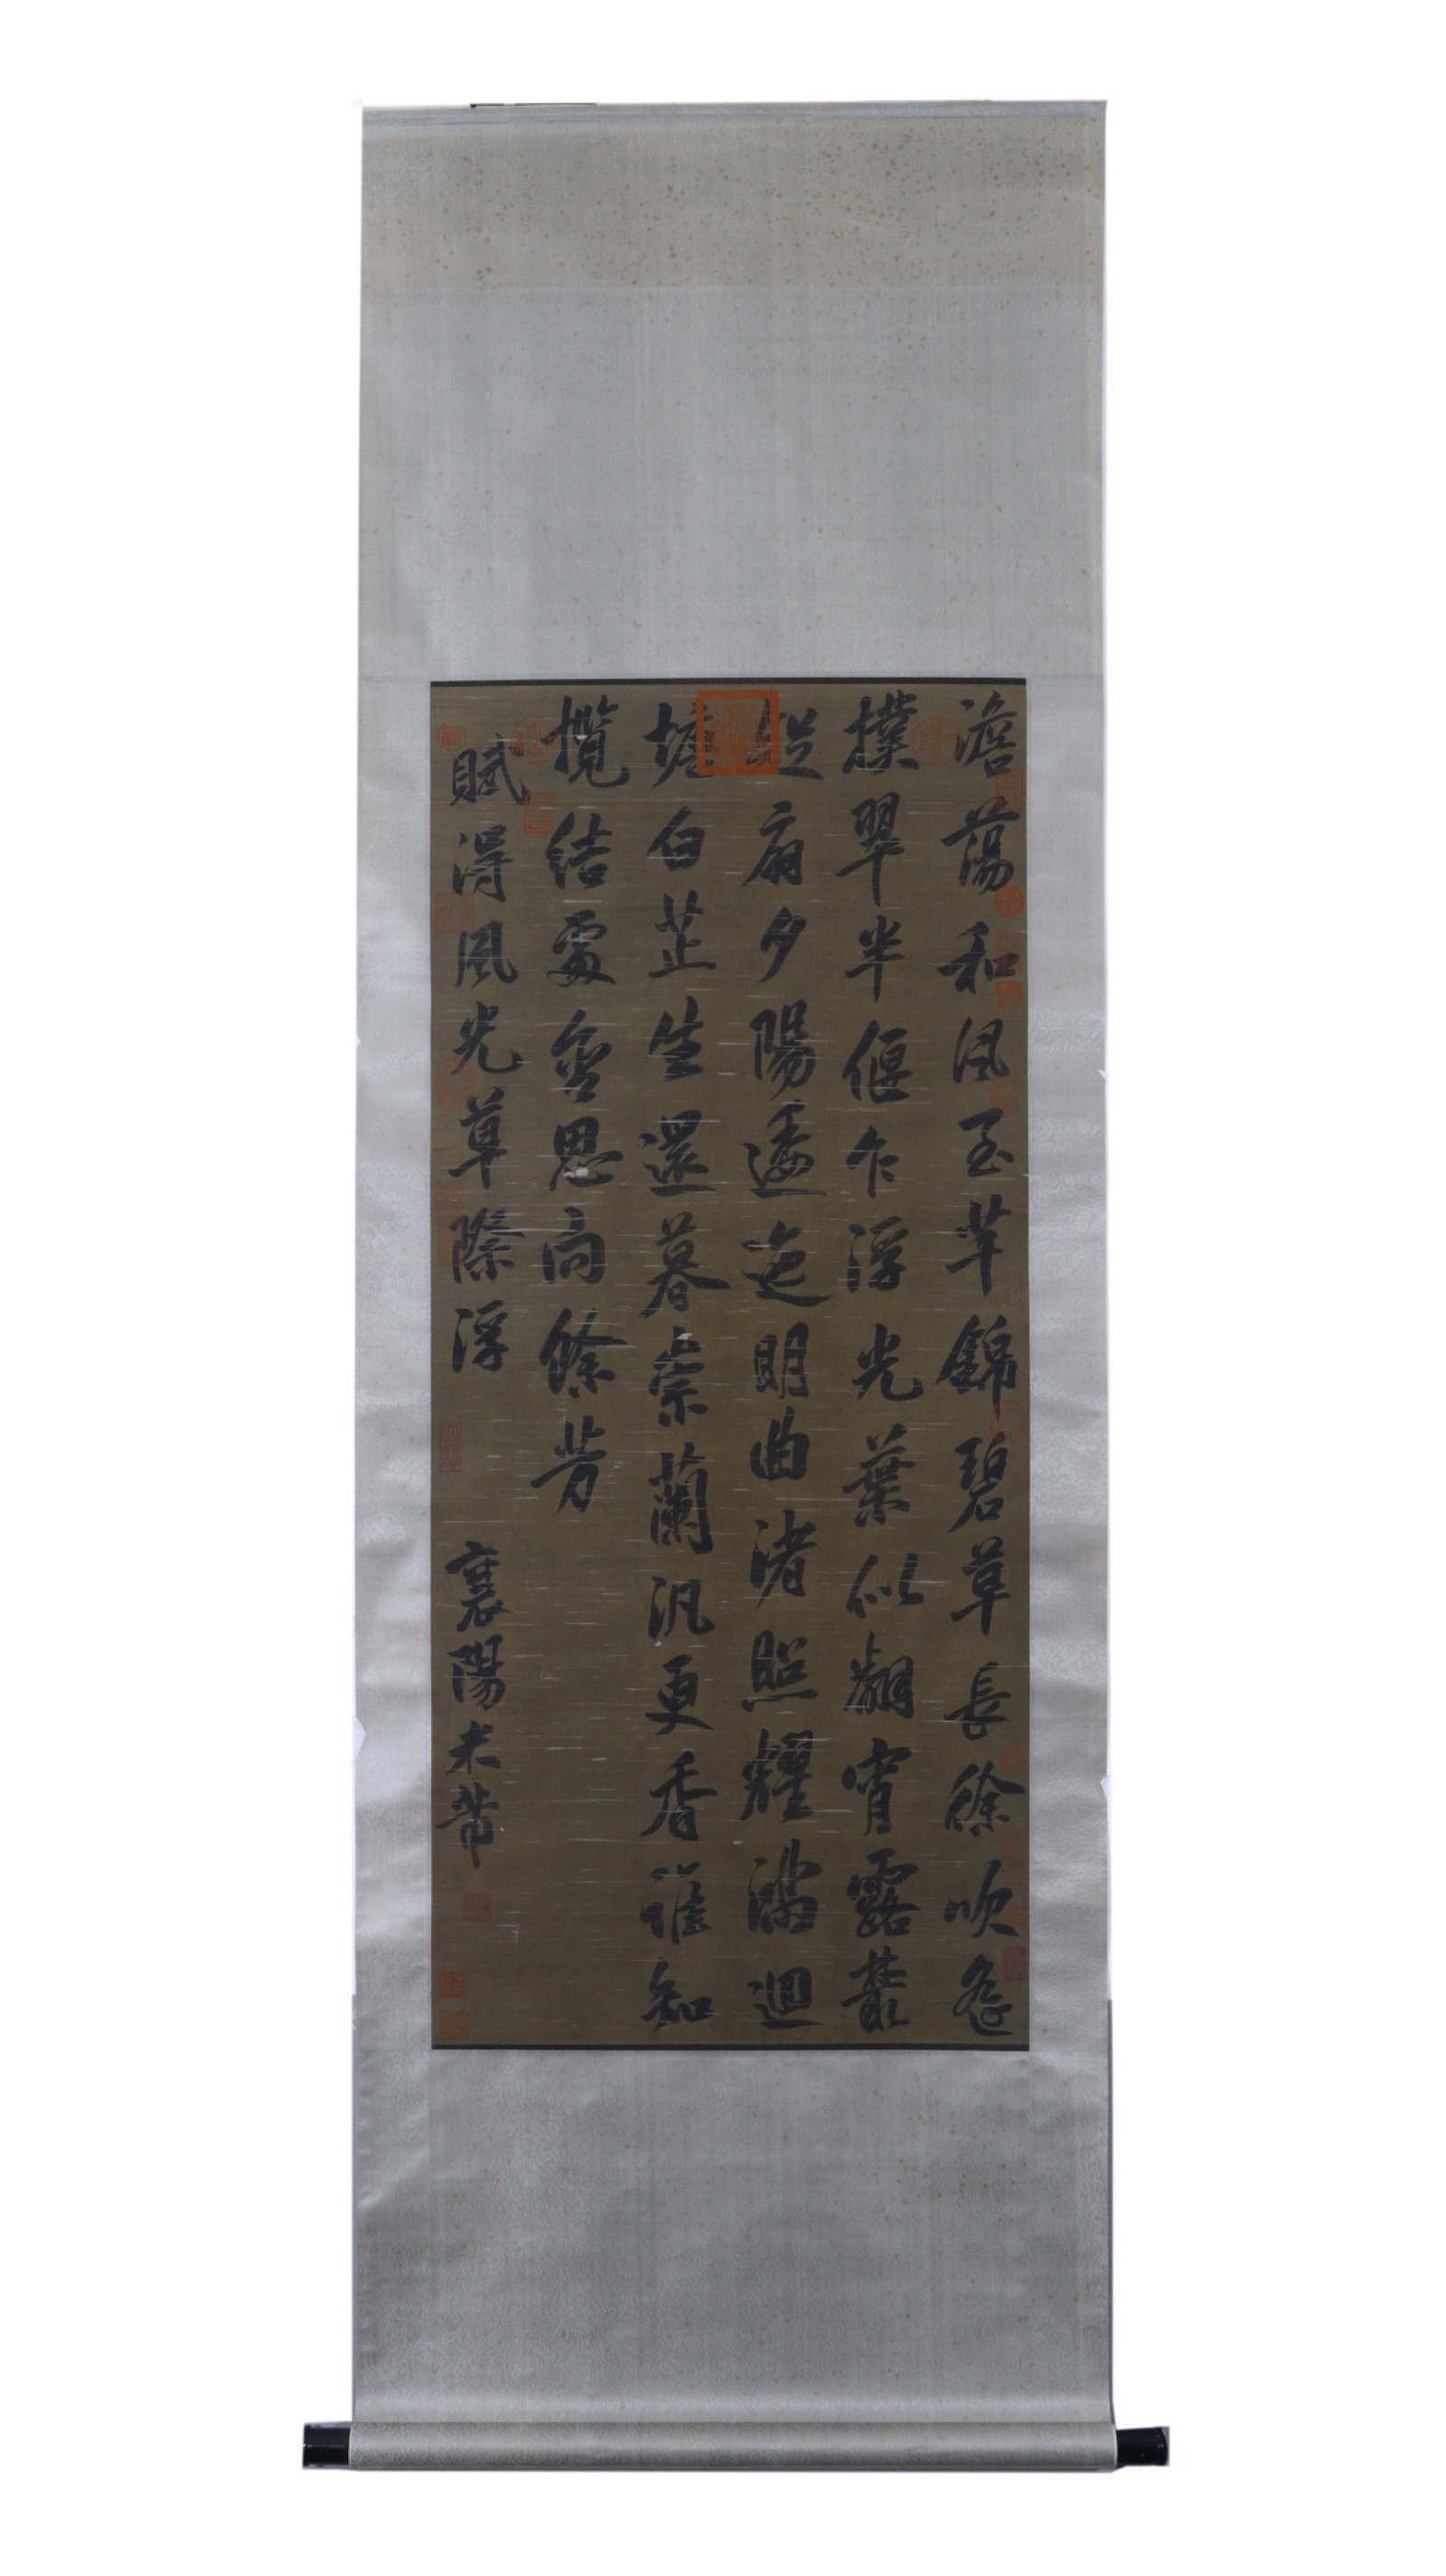 澹蕩和風至芊錦碧草長徐吹遙
撲翠半偃乍浮光葉似翻宵露叢
疑扇夕陽逶迤明曲渚照耀滿迴
塘白芷生還暮崇蘭汎更香誰知
攬結處含思向餘芳
賦得風光草際浮 襄陽米芾